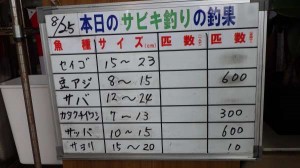 8/25 本日のサビキ釣りの釣果
魚種 サイズ(cm) 匹数 匹数
セイゴ 15~23
豆アジ 8~15 600
サバ 12~24
カタクチイワシ 7~13 300
サッパ 10~15 600
サヨリ 15~20 10